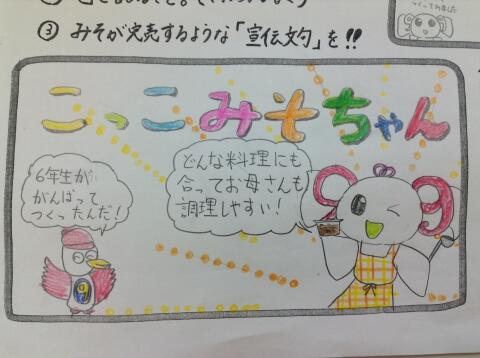 ③ みそが完売するような「宣伝文句」を!!
つくってみました
こっこみそちゃん
6年生が
がんばって
つくったんだ!
どんな料理にも
合ってお母さんも
調理しやすい!